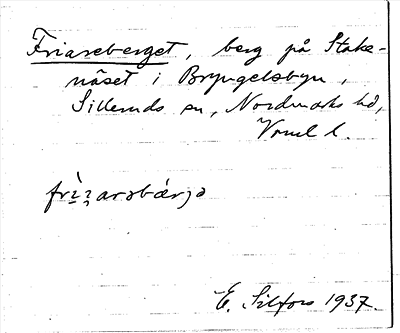 Friareberget, berg på Stake-
näset i Bryngelsbyn,
Silleruds sn, Nordmarks hd,
Vrml l.
E. Silfors 1937.